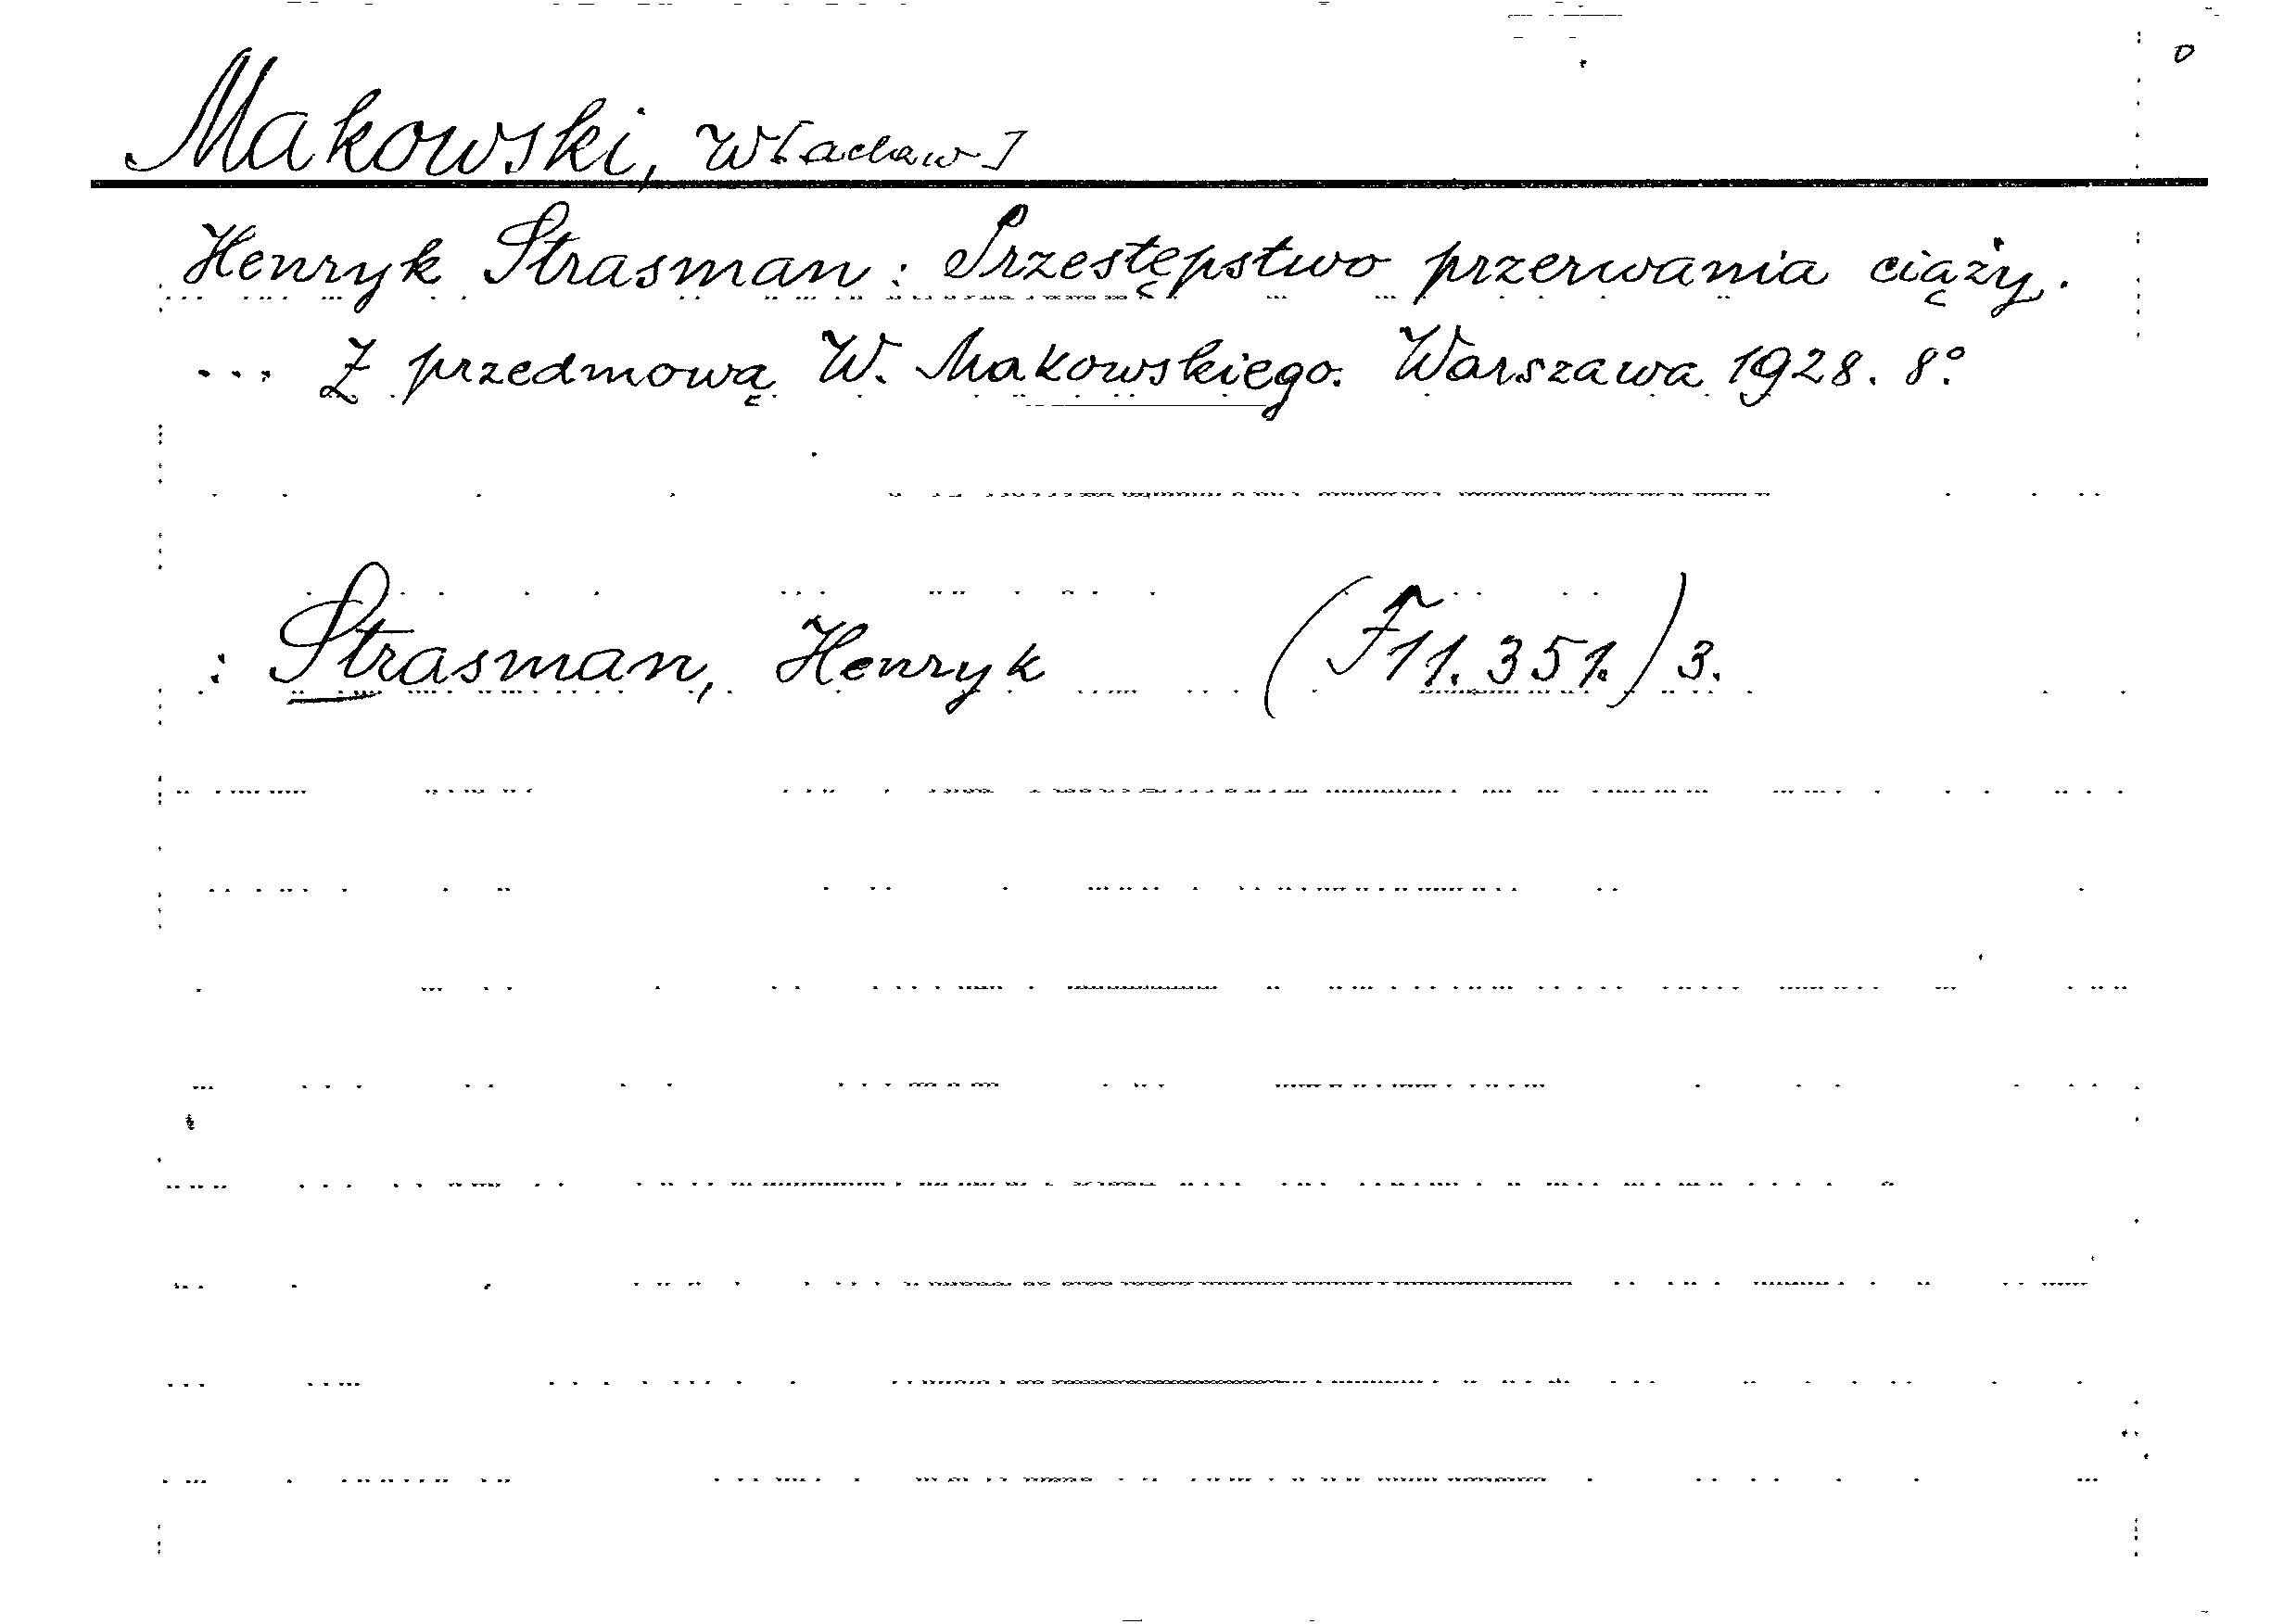 Makowski, W[acław]
Henryk Strasman: Przestępstwo przerwania ciąży.
... Z przedmową W. Makowskiego. Warszawa 1928. 8°.
: Strasman, Henryk (F11.351.) 3.